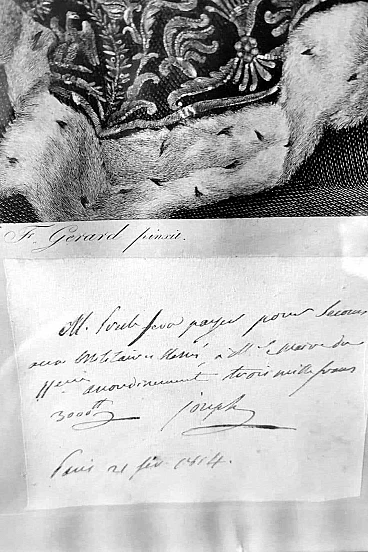 F. Gerard pinxit.
M. fera payer pour Secours
aux Militaires blessés à M. le Maire du
11eme arrondissement trois mille francs
3000tt Joseph
Paris 21 fev 1814.